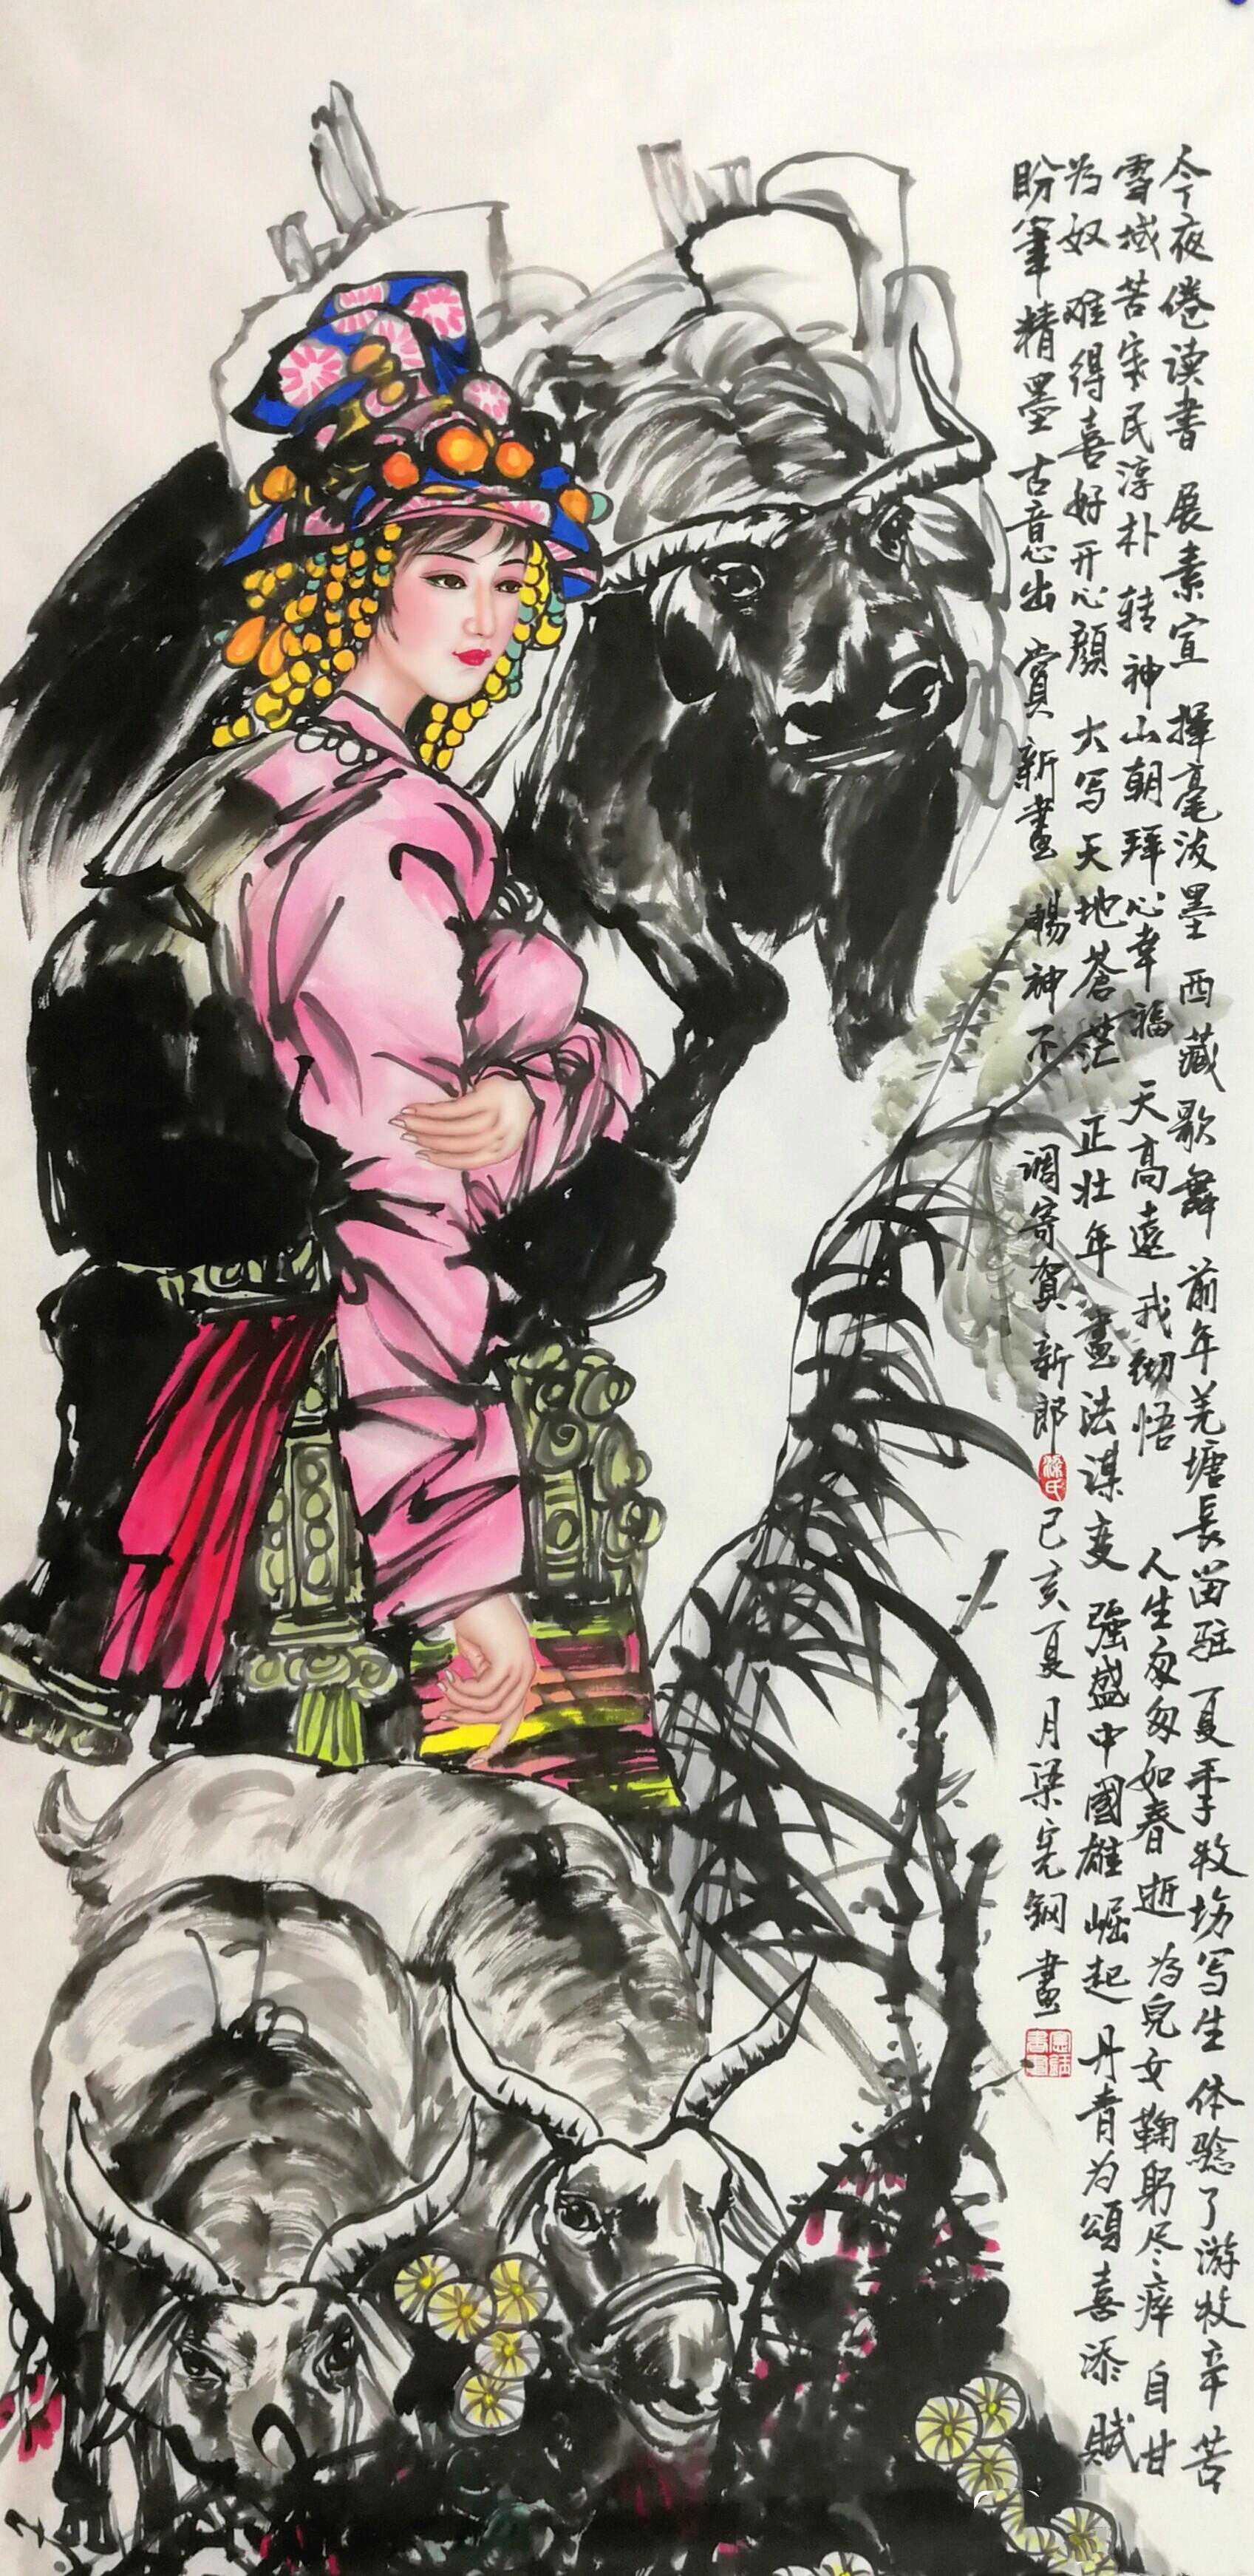 今夜倦读书 展素宣 挥毫泼墨 西藏歌舞 前年羌塘長留駐 夏季牧场写生 体验了游牧辛苦
雪域苦寒民淳朴 转神山朝拜心幸福 天高遠 我彻悟 人生匆匆如春逝 为兒女鞠躬尽瘁 自甘
为奴 难得喜好开心顏 大写天地蒼茫 正壮年 畫法谋变 强盛中國雄崛起 丹青为頌喜添賦
盼筆精墨古意出 賞新畫 暢神不 调寄賀新郎 梁氏 己亥夏月梁宪钢畫